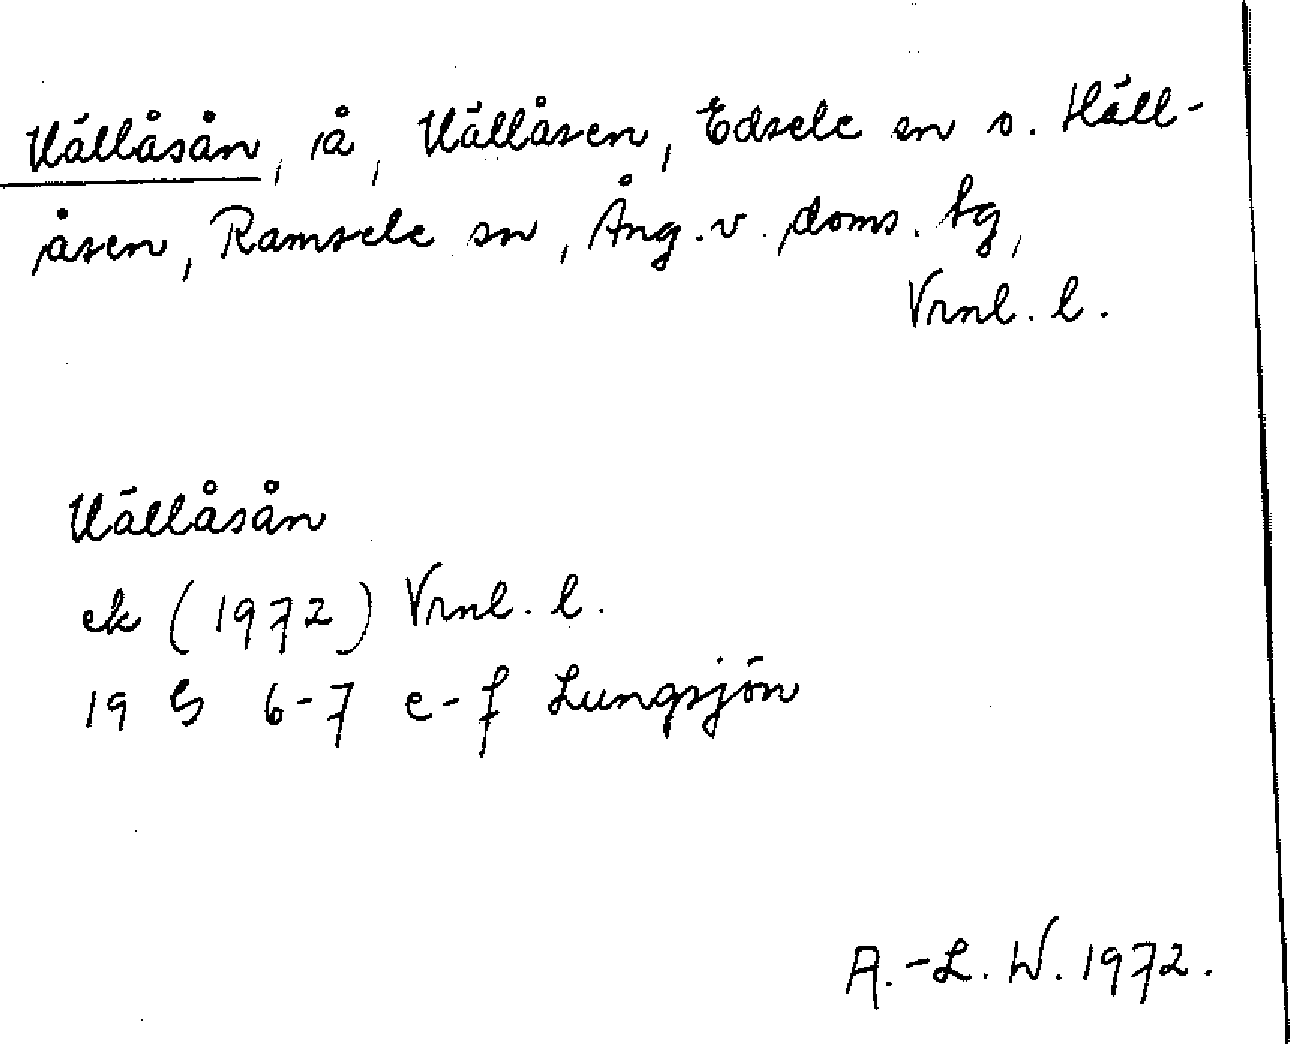 Hällåsån, å, Hällåsen, Edsele sn o. Häll-
åsen, Ramsele sn, Ång. v. doms. tg,
Vrnl. l.
Hällåsån
ek (1972) Vrnl. l.
19 G 6-7 e-f Lungsjön
A.-L. W. 1972.